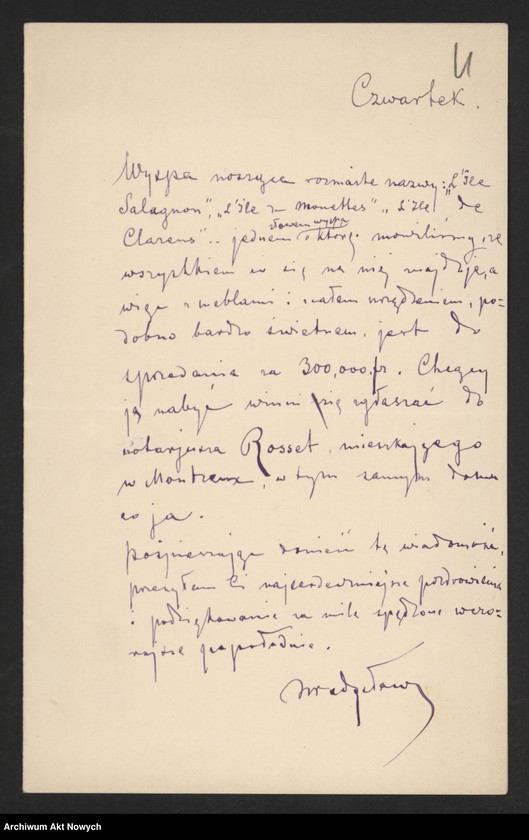 11
Czwartek.
Wyspa nosząca rozmaite nazwy: "L'Ile
Salagnon", "L'Ile des Mouettes", "L'Ile de
Clarens".. jednem słowem wyspa o której mowiliśmy, ze
wszystkiem co się na niej znajduje, a
więc z meblami i całem urządzeniem, po=
dobno bardzo świetnem, jest do
sprzedania za 300,000 fr. Chcący
ją nabyć winni się zgłaszać do
notarjusza Rosset, mieszkającego
w Montreux, w tym samym domu
co ja.
Pośpieszając donieść tę wiadomość,
przesyłam Ci najserdeczniejsze pozdrowienia
i podziękowanie za mile spędzone wczo=
rajsze popołudnie.
Archiwum Akt Nowych